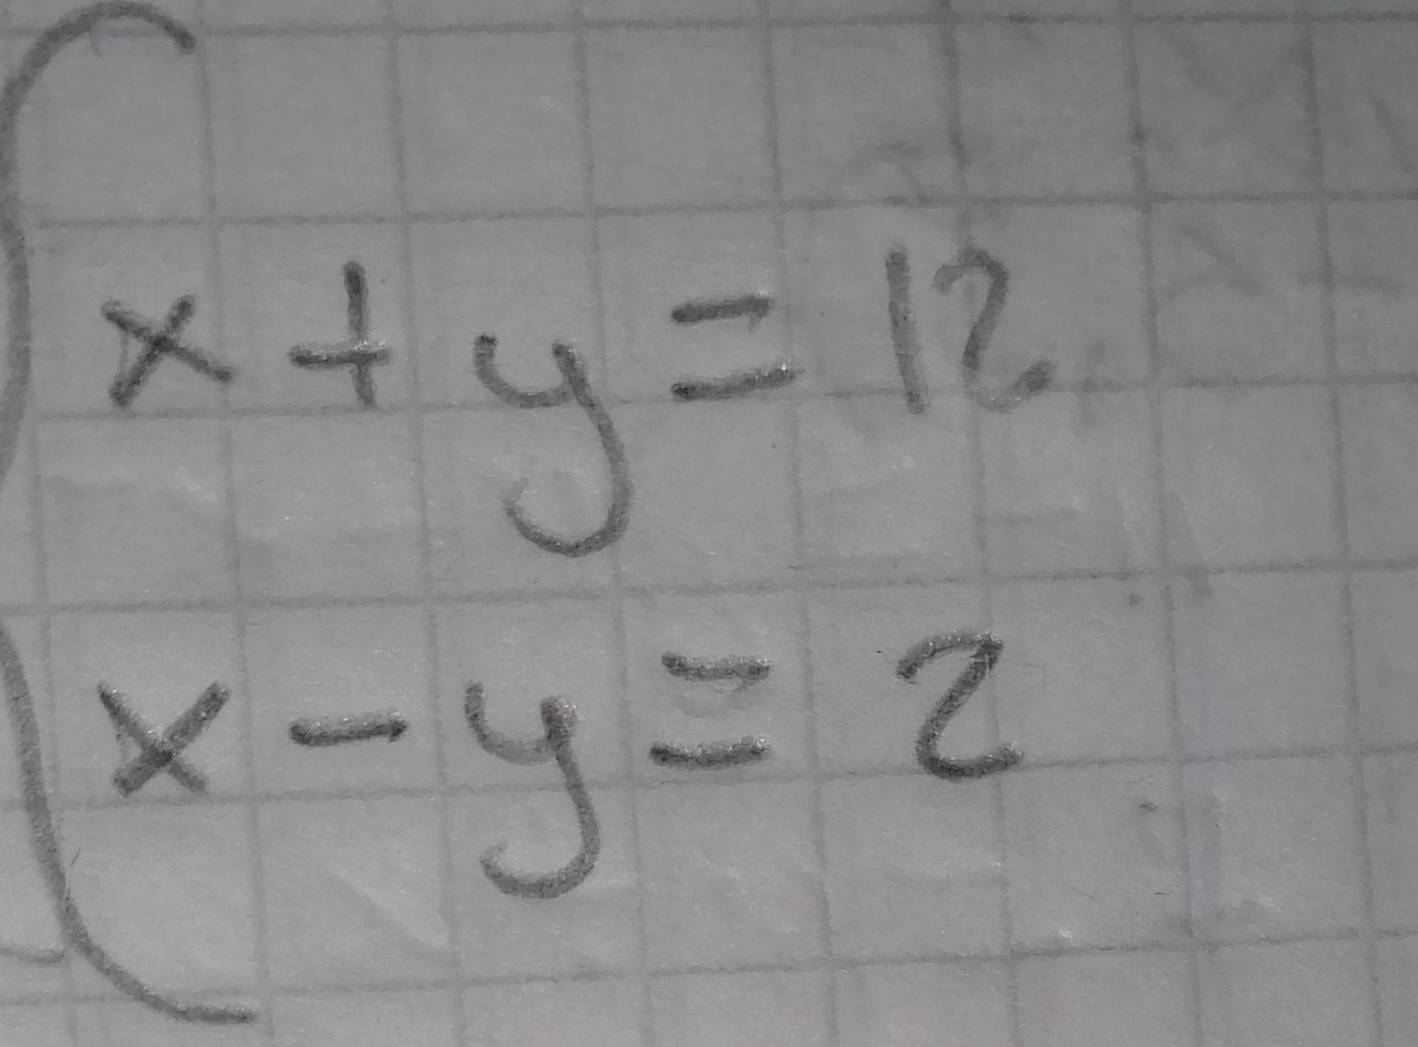 x + y = 12
x - y = 2